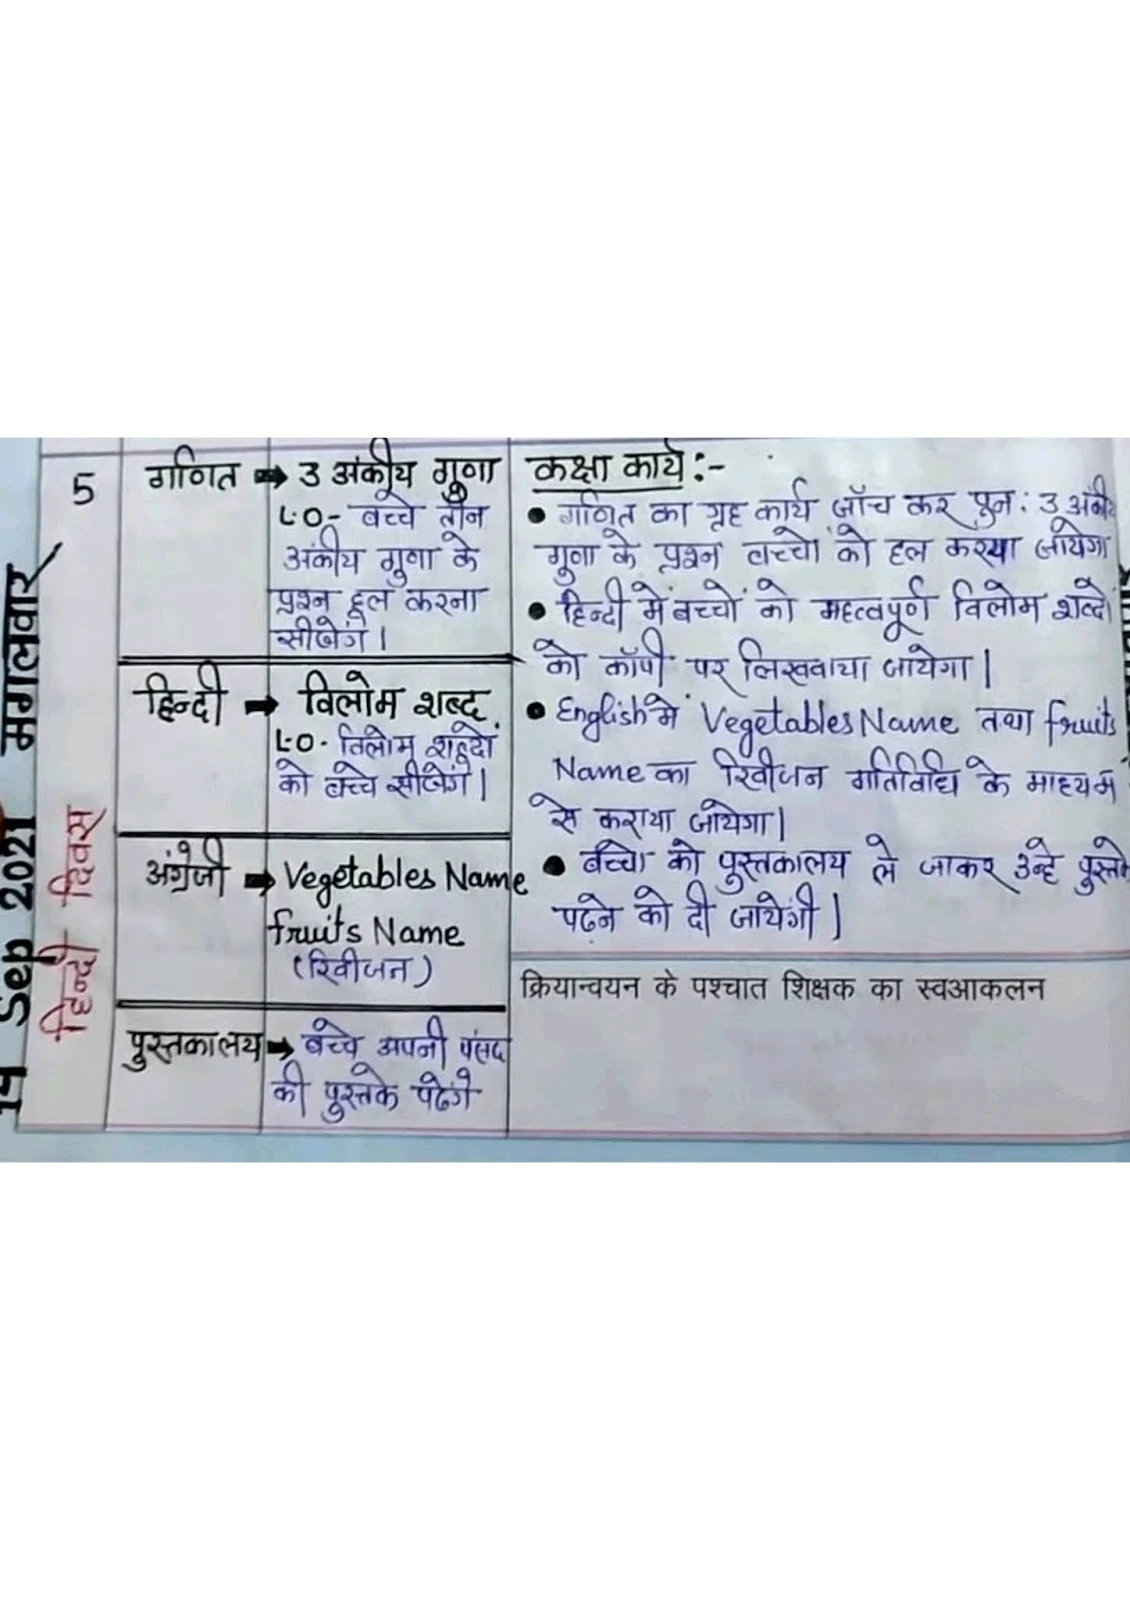 14 Sep 2021 मंगलवार
हिन्दी दिवस
5
गणित → 3 अंकीय गुणा
L.O- बच्चे तीन
अंकीय गुणा के
प्रश्न हल करना
सीखेंगे।
हिन्दी → विलोम शब्द
L.O- विलोम शब्दों
को बच्चे सीखेंगे।
अंग्रेजी → Vegetables Name
fruits Name
(रिवीजन)
पुस्तकालय → बच्चे अपनी पंसद
की पुस्तके पढेंगे
कक्षा कार्य :-
• गणित का गृह कार्य जाँच कर पुन: 3 अंकीय
गुणा के प्रश्न बच्चों को हल कराया जायेगा
• हिन्दी में बच्चों को महत्वपूर्ण विलोम शब्दों
को कॉपी पर लिखवाया जायेगा।
• English में Vegetables Name तथा fruits
Name का रिवीजन गतिविधि के माध्यम
से कराया जायेगा।
• बच्चों को पुस्तकालय ले जाकर उन्हे पुस्तके
पढने को दी जायेंगी।
क्रियान्वयन के पश्चात शिक्षक का स्वआकलन